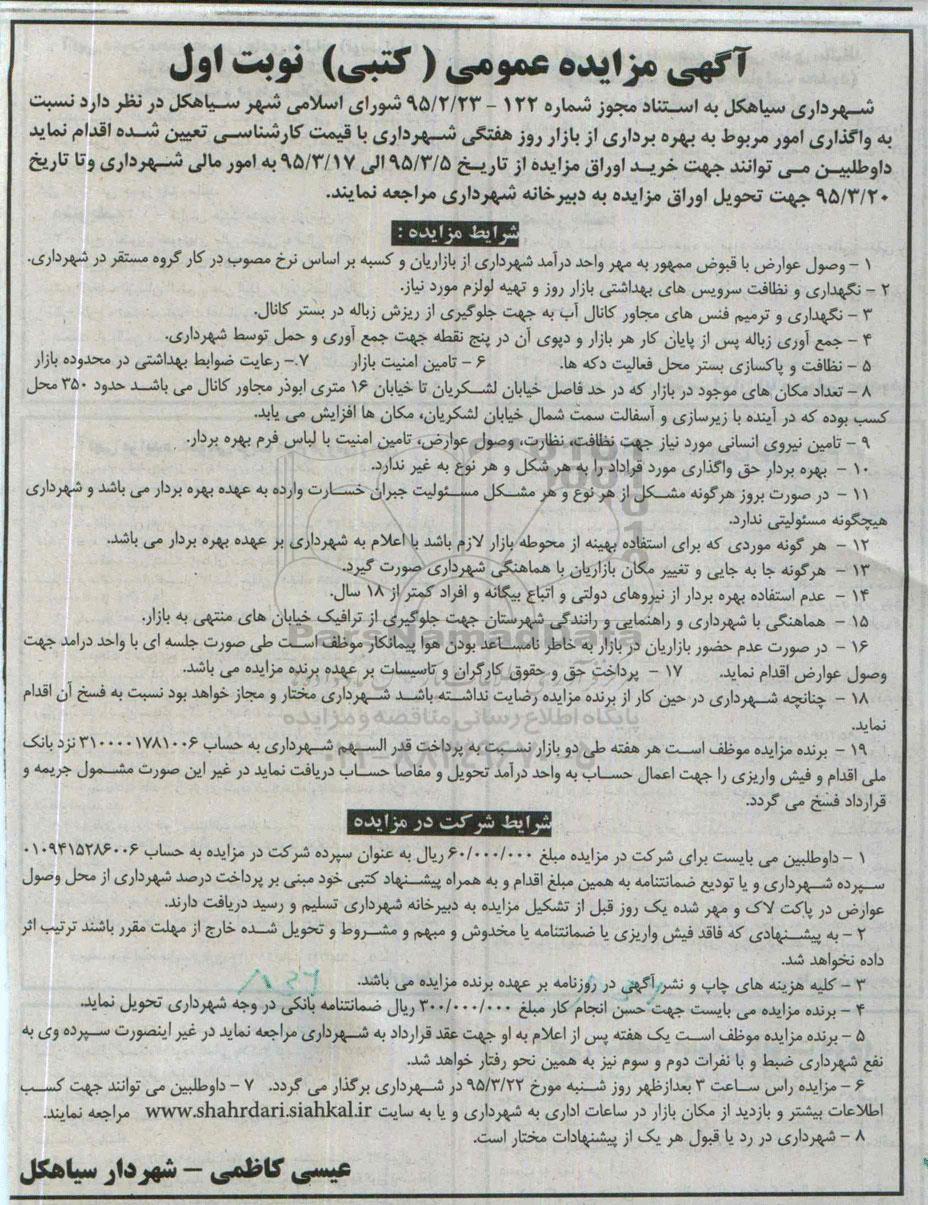 آگهی مزایده عمومی ( کتبی) نوبت اول
شهرداری سیاهکل به استناد مجوز شماره ۱۲۲ - ۹۵/۲/۲۳ شورای اسلامی شهر سیاهکل در نظر دارد نسبت
به واگذاری امور مربوط به بهره برداری از بازار روز هفتگی شهرداری با قیمت کارشناسی تعیین شده اقدام نماید
داوطلبین می توانند جهت خرید اوراق مزایده از تاریخ ۹۵/۳/۵ الی ۹۵/۳/۱۷ به امور مالی شهرداری وتا تاریخ
۹۵/۳/۲۰ جهت تحویل اوراق مزایده به دبیرخانه شهرداری مراجعه نمایند.
شرایط مزایده :
۱ - وصول عوارض با قبوض ممهور به مهر واحد درآمد شهرداری از بازاریان و کسبه بر اساس نرخ مصوب در کار گروه مستقر در شهرداری.
۲ - نگهداری و نظافت سرویس های بهداشتی بازار روز و تهیه لولزم مورد نیاز.
۳ - نگهداری و ترمیم فنس های مجاور کانال آب به جهت جلوگیری از ریزش زباله در بستر کانال.
۴ - جمع آوری زباله پس از پایان کار هر بازار و دپوی آن در پنج نقطه جهت جمع آوری و حمل توسط شهرداری.
۵ - نظافت و پاکسازی بستر محل فعالیت دکه ها. ۶ - تامین امنیت بازار ۷.- رعایت ضوابط بهداشتی در محدوده بازار
۸ - تعداد مکان های موجود در بازار که در حد فاصل خیابان لشکریان تا خیابان ۱۶ متری ابوذر مجاور کانال می باشد حدود ۳۵۰ محل
کسب بوده که در آینده با زیرسازی و آسفالت سمت شمال خیابان لشکریان، مکان ها افزایش می یابد.
۹ - تامین نیروی انسانی مورد نیاز جهت نظافت، نظارت، وصول عوارض، تامین امنیت با لباس فرم بهره بردار.
۱۰ - بهره بردار حق واگذاری مورد قراداد را به هر شکل و هر نوع به غیر ندارد.
۱۱ - در صورت بروز هرگونه مشکل از هر نوع و هر مشکل مسئولیت جبران خسارت وارده به عهده بهره بردار می باشد و شهرداری
هیچگونه مسئولیتی ندارد.
۱۲ - هر گونه موردی که برای استفاده بهینه از محوطه بازار لازم باشد با اعلام به شهرداری بر عهده بهره بردار می باشد.
۱۳ - هرگونه جا به جایی و تغییر مکان بازاریان با هماهنگی شهرداری صورت گیرد.
۱۴ - عدم استفاده بهره بردار از نیروهای دولتی و اتباع بیگانه و افراد کمتر از ۱۸ سال.
۱۵ - هماهنگی با شهرداری و راهنمایی و رانندگی شهرستان جهت جلوگیری از ترافیک خیابان های منتهی به بازار.
۱۶ - در صورت عدم حضور بازاریان در بازار به خاطر نامساعد بودن هوا پیمانکار موظف است طی صورت جلسه ای با واحد درامد جهت
وصول عوارض اقدام نماید. ۱۷ - پرداخت حق و حقوق کارگران و تاسیسات بر عهده برنده مزایده می باشد.
۱۸ - چنانچه شهرداری در حین کار از برنده مزایده رضایت نداشته باشد شهرداری مختار و مجاز خواهد بود نسبت به فسخ آن اقدام
نماید.
۱۹ - برنده مزایده موظف است هر هفته طی دو بازار نسبت به پرداخت قدر السهم شهرداری به حساب ۳۱۰۰۰۰۱۷۸۱۰۰۶ نزد بانک
ملی اقدام و فیش واریزی را جهت اعمال حساب به واحد درآمد تحویل و مفاصا حساب دریافت نماید در غیر این صورت مشمول جریمه و
قرارداد فسخ می گردد.
شرایط شرکت در مزایده
۱ - داوطلبین می بایست برای شرکت در مزایده مبلغ ۶۰/۰۰۰/۰۰۰ ریال به عنوان سپرده شرکت در مزایده به حساب ۰۱۰۹۴۱۵۲۸۶۰۰۶
سپرده شهرداری و یا تودیع ضمانتنامه به همین مبلغ اقدام و به همراه پیشنهاد کتبی خود مبنی بر پرداخت درصد شهرداری از محل وصول
عوارض در پاکت لاک و مهر شده یک روز قبل از تشکیل مزایده به دبیرخانه شهرداری تسلیم و رسید دریافت دارند.
۲ - به پیشنهادی که فاقد فیش واریزی یا ضمانتنامه یا مخدوش و مبهم و مشروط و تحویل شده خارج از مهلت مقرر باشند ترتیب اثر
داده نخواهد شد.
۳ - کلیه هزینه های چاپ و نشر آگهی در روزنامه بر عهده برنده مزایده می باشد.
۴ - برنده مزایده می بایست جهت حسن انجام کار مبلغ ۳۰۰/۰۰۰/۰۰۰ ریال ضمانتنامه بانکی در وجه شهرداری تحویل نماید.
۵ - برنده مزایده موظف است یک هفته پس از اعلام به او جهت عقد قرارداد به شهرداری مراجعه نماید در غیر اینصورت سپرده وی به
نفع شهرداری ضبط و با نفرات دوم و سوم نیز به همین نحو رفتار خواهد شد.
۶ - مزایده راس ساعت ۳ بعدازظهر روز شنبه مورخ ۹۵/۳/۲۲ در شهرداری برگذار می گردد. ۷ - داوطلبین می توانند جهت کسب
اطلاعات بیشتر و بازدید از مکان بازار در ساعات اداری به شهرداری و یا به سایت www.shahrdari.siahkal.ir مراجعه نمایند.
۸ - شهرداری در رد یا قبول هر یک از پیشنهادات مختار است.
عیسی کاظمی - شهردار سیاهکل
ParsNamadData
پایگاه اطلاع رسانی مناقصه و مزایده